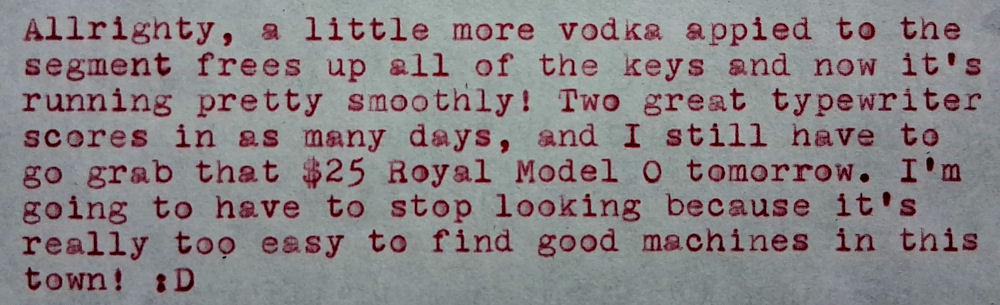 Allrighty, a little more vodka appied to the
segment frees up all of the keys and now it's
running pretty smoothly! Two great typewriter
scores in as many days, and I still have to
go grab that $25 Royal Model O tomorrow. I'm
going to have to stop looking because it's
really too easy to find good machines in this
town! :D